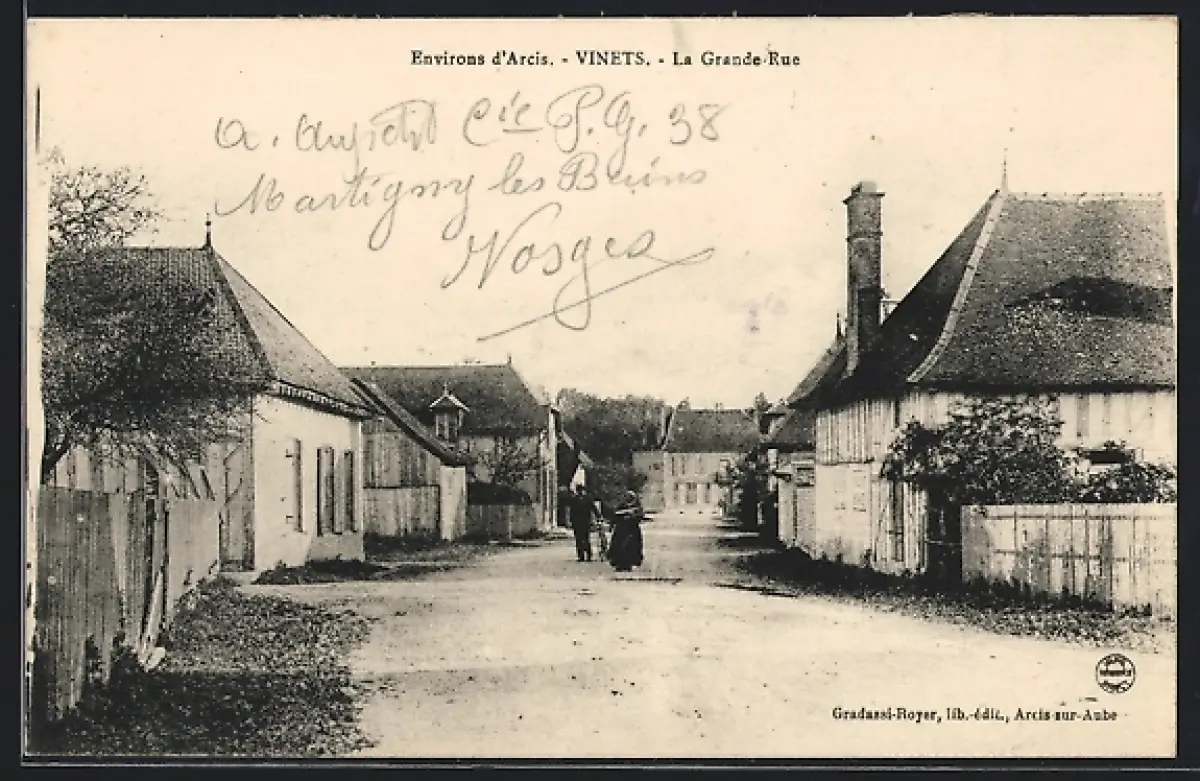 Environs d'Arcis. - VINETS. - La Grande-Rue
A. Cie P. G. 38
Martigny les Bains
Vosges
Gradassi-Royer, lib.-édit., Arcis-sur-Aube